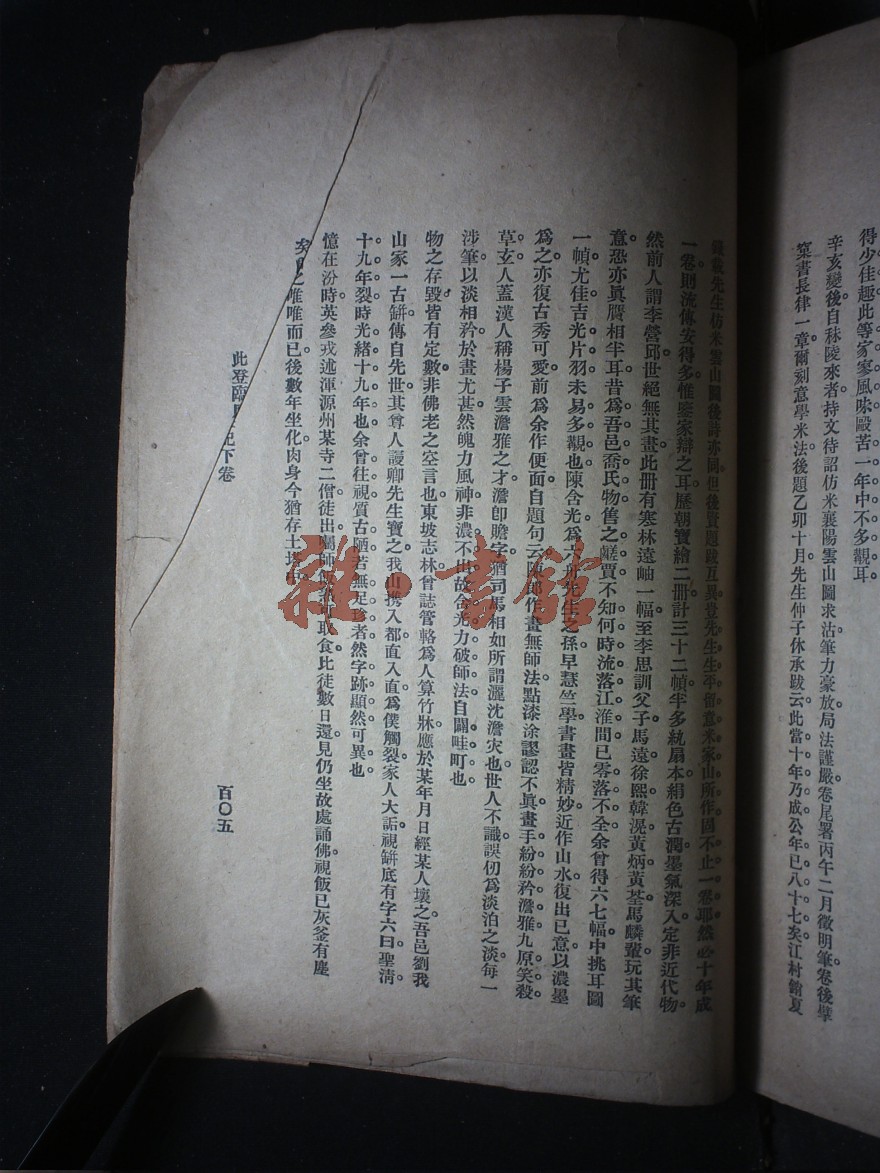 得少佳趣此等家寥風味毆苦一年中不多觀耳
辛亥變後自秣陵來者持文待詔仿米襄陽雲山圖求沽筆力豪放局法謹嚴卷尾署丙午二月徵明筆卷後擘
窠書長律一章爾刻意學米法後題乙卯十月先生仲子休承跋云此當十年乃成公年已八十七矣江村銷夏
先生仿米雲山圖後詩亦同但後賢題跋互異豈先生生平留意米家山所作固不止一卷耶然必十年成
一卷則流傳安得多惟鑒家辯之耳歷朝寶繪二冊計三十二幀半多紈扇本絹色古潤墨氣深入定非近代物
然前人謂李營邱世絕無其畫此冊有寒林遠岫一幅至李思訓父子馬遠徐熙韓滉黃炳黃荃馬麟輩玩其筆
意恐亦眞贋相半耳昔為吾邑喬氏物舊之鹺賈不知何時流落江淮間已零落不全余曾得六七幅中挑耳圖
一幀尤佳吉光片羽未易多觀也陳含光為六舟先生之孫早慧竺學書畫皆精妙近作山水復出已意以濃墨
為之亦復古秀可愛前為余作便面自題句云陳郎作畫無師法點漆涂謬認不眞畫手紛紛矜澹雅九原笑殺
草玄人蓋漢人稱楊子雲澹雅之才澹卽贍字猶司馬相如所謂灑沈澹灾也世人不識誤仞為淡泊之淡每一
涉筆以淡相矜於畫尤甚然魄力風神非濃不出故含光力破師法自闢畦町也
物之存毀皆有定數非佛老之空言也東坡志林曾誌管輅為人算竹牀應於某年月日經某人壞之吾邑劉我
山家一古缾傳自先世其尊人謾卿先生寶之我山携入都直入直為僕觸裂家人大詬視缾底有字六曰聖淸
十九年裂時光緒十九年也余曾往視質古陋若無足珍者然字跡顯然可異也
憶在汾時英參戎述渾源州某寺二僧徒出囑師取食比徒數日還見仍坐故處誦佛視飯已灰釜有塵
矣之唯唯而已後數年坐化肉身今猶存土塔中
此登臨記下卷
百〇五
雜·書館